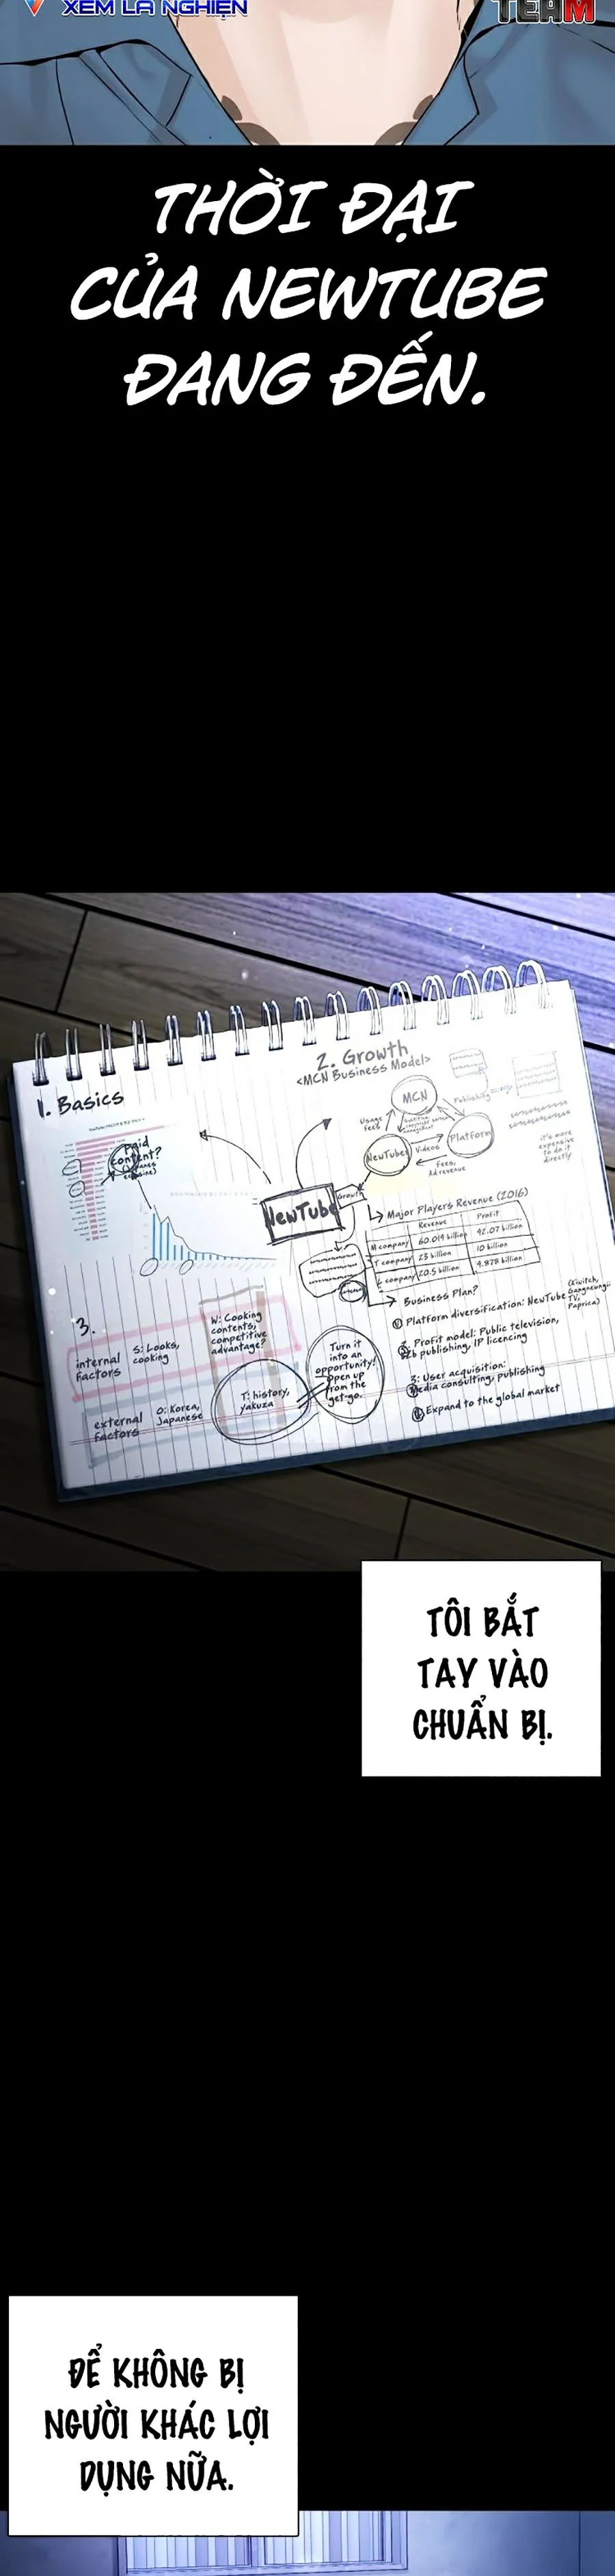 XEM LÀ NGHIỆN
TEAM
THỜI ĐẠI
CỦA NEWTUBE
ĐANG ĐẾN.
1. Basics
paid
content?
2. Growth
<MCN Business Model>
MCN
Usage
Fees
Publishing
NewTube
Videos
Platform
Fees,
Ad revenue
it's more
expensive
to do it
directly
NewTube
Growth
Major Players Revenue (2016)
Revenue
Profit
M company
60.019 billion
42.07 billion
T company
23 billion
10 billion
L company
20.5 billion
4.878 billion
Business Plan?
Platform diversification: NewTube
(Kiwitch,
Gangneungji
TV,
Paprica)
2. Profit model: Public television,
publishing, IP licencing
3: User acquisition:
Media consulting, publishing
Expand to the global market
3.
internal
factors
S: Looks,
cooking
W: Cooking
contents,
competitive
advantage?
external
factors
O: Korea,
Japanese
T: history,
yakuza
Turn it
into an
opportunity!
Open up
from the
get-go.
TÔI BẮT
TAY VÀO
CHUẨN BỊ.
ĐỂ KHÔNG BỊ
NGƯỜI KHÁC LỢI
DỤNG NỮA.